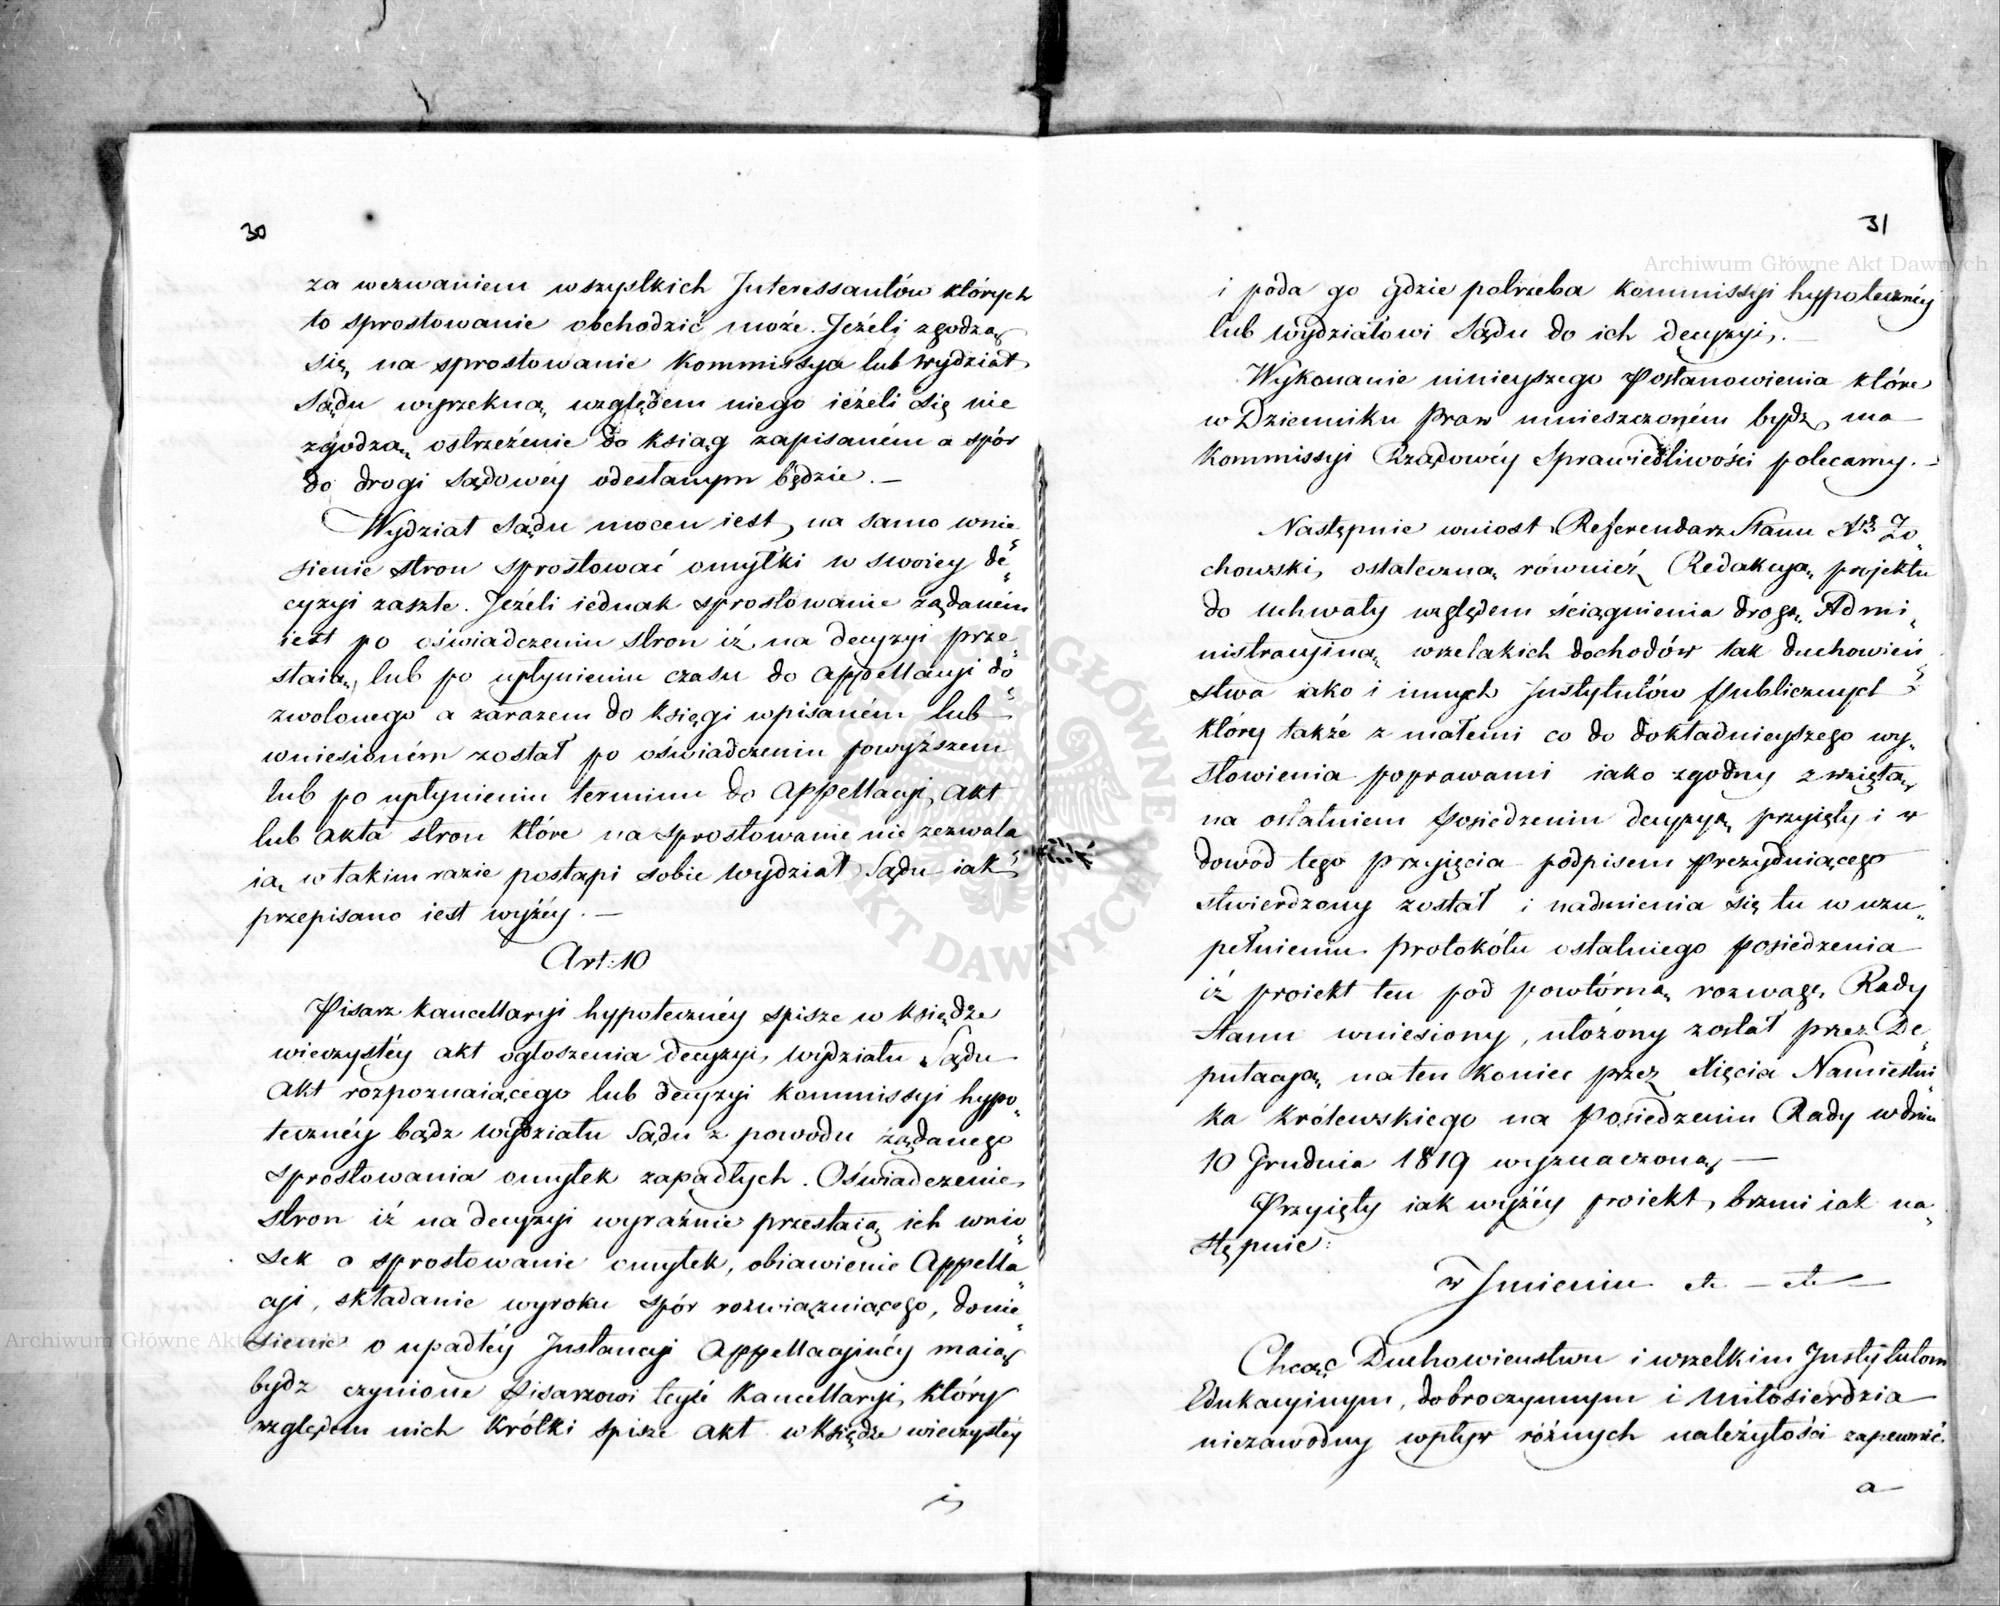 30
za wezwaniem wszystkich Interessantów których
to sprostowanie obchodzić może. Jeżeli zgodzą
się, na sprostowanie Kommissya lub Wydział
Sądu wyrzekną, względem niego ieżeli się nie
zgodzą, ostrzeżenie do ksiąg zapisaném a spór
do drogi Sądowéy odesłanym będzie. —
Wydział Sądu mocen iest, na samo wnie„
sienie stron sprostować omyłki w swoiey de„
cyzyi zaszłe. Jeżeli iednak sprostowanie żądaném
iest po oświadczeniu stron iż na decyzyi prze„
staią, lub po upłynieniu czasu do appellacyi do„
zwolonego a zarazem do księgi wpisaném lub
wniesioném został po oświadczeniu powyższem
lub po upłynieniu terminu do Appellacyi, akt
lub akta stron które na sprostowanie nie zezwala„
ią, w takim razie postąpi sobie Wydział Sądu iak
przepisano iest wyżéy. —
Art: 10
Pisarz Kancellaryi hypotecznéy spisze w księdze
wieczystéy akt ogłoszenia decyzyi, wydziału Sądu
akt rozpoznaiącego lub decyzyi Kommissyi hypo„
tecznéy bądz wydziału Sądu z powodu żądanego
sprostowania omyłek zapadłych. Oświadczenie
stron iż na decyzyi wyraźnie przestaią, ich wnio„
sek o sprostowanie omyłek, obiawienie Appella„
cyi, składanie wyroku spór rozwiązuiącego, donie„
sienie o upadłéy Instancyi Appellacyinéy maią
bydz czynione Pisarzowi teyże Kancellaryi, który
względem nich krótki spisze akt w księdze wieczystéy
i
31
i poda go gdzie potrzeba Kommissyi hypotecznéy
lub wydziałowi Sądu do ich decyzyi. —
Wykonanie ninieyszego Postanowienia które
w Dzienniku Praw umieszczoném bydz ma
Kommissyi Rządowéy Sprawiedliwości polecamy. —
Następnie wniosł Referendarz Stanu Nrz Zo„
chowski, ostateczną, również Redakcyą, projektu
do uchwały względem ściągnienia drogą, Admi„
nistracyiną, wszelakich dochodów tak duchowień„
stwa iako i innych Instytutów Publicznych
który także z małemi co do dokładnieyszego wy„
słowienia poprawami iako zgodny z wziętą,
na ostatniem Posiedzeniu decyzyą, przyięty i w
dowód tego przyjęcia podpisem Prezyduiącego
stwierdzony został i nadmienia się tu w uzu„
pełnieniu protokółu ostatniego Posiedzenia
iż proiekt ten pod powtórną, rozwagę, Rady
Stanu wniesiony, ułożony został przez De„
putacyą, na ten koniec przez Xięcia Namiestni„
ka Królewskiego na Posiedzeniu Rady w dniu
10 Grudnia 1819 wyznaczoną. —
Przyięty iak wyżéy proiekt, brzmi iak na„
stępuie:
w Imieniu etc — etc —
Chcąc Duchowieństwu i wszelkim Instytutom
Edukacyinym, dobroczynnym i Miłosierdzia
niezawodny wpływ różnych należytości zapewnić
a
Archiwum Główne Akt Dawnych
Archiwum Główne Akt Dawnych
ARCHIWUM GŁÓWNE AKT DAWNYCH